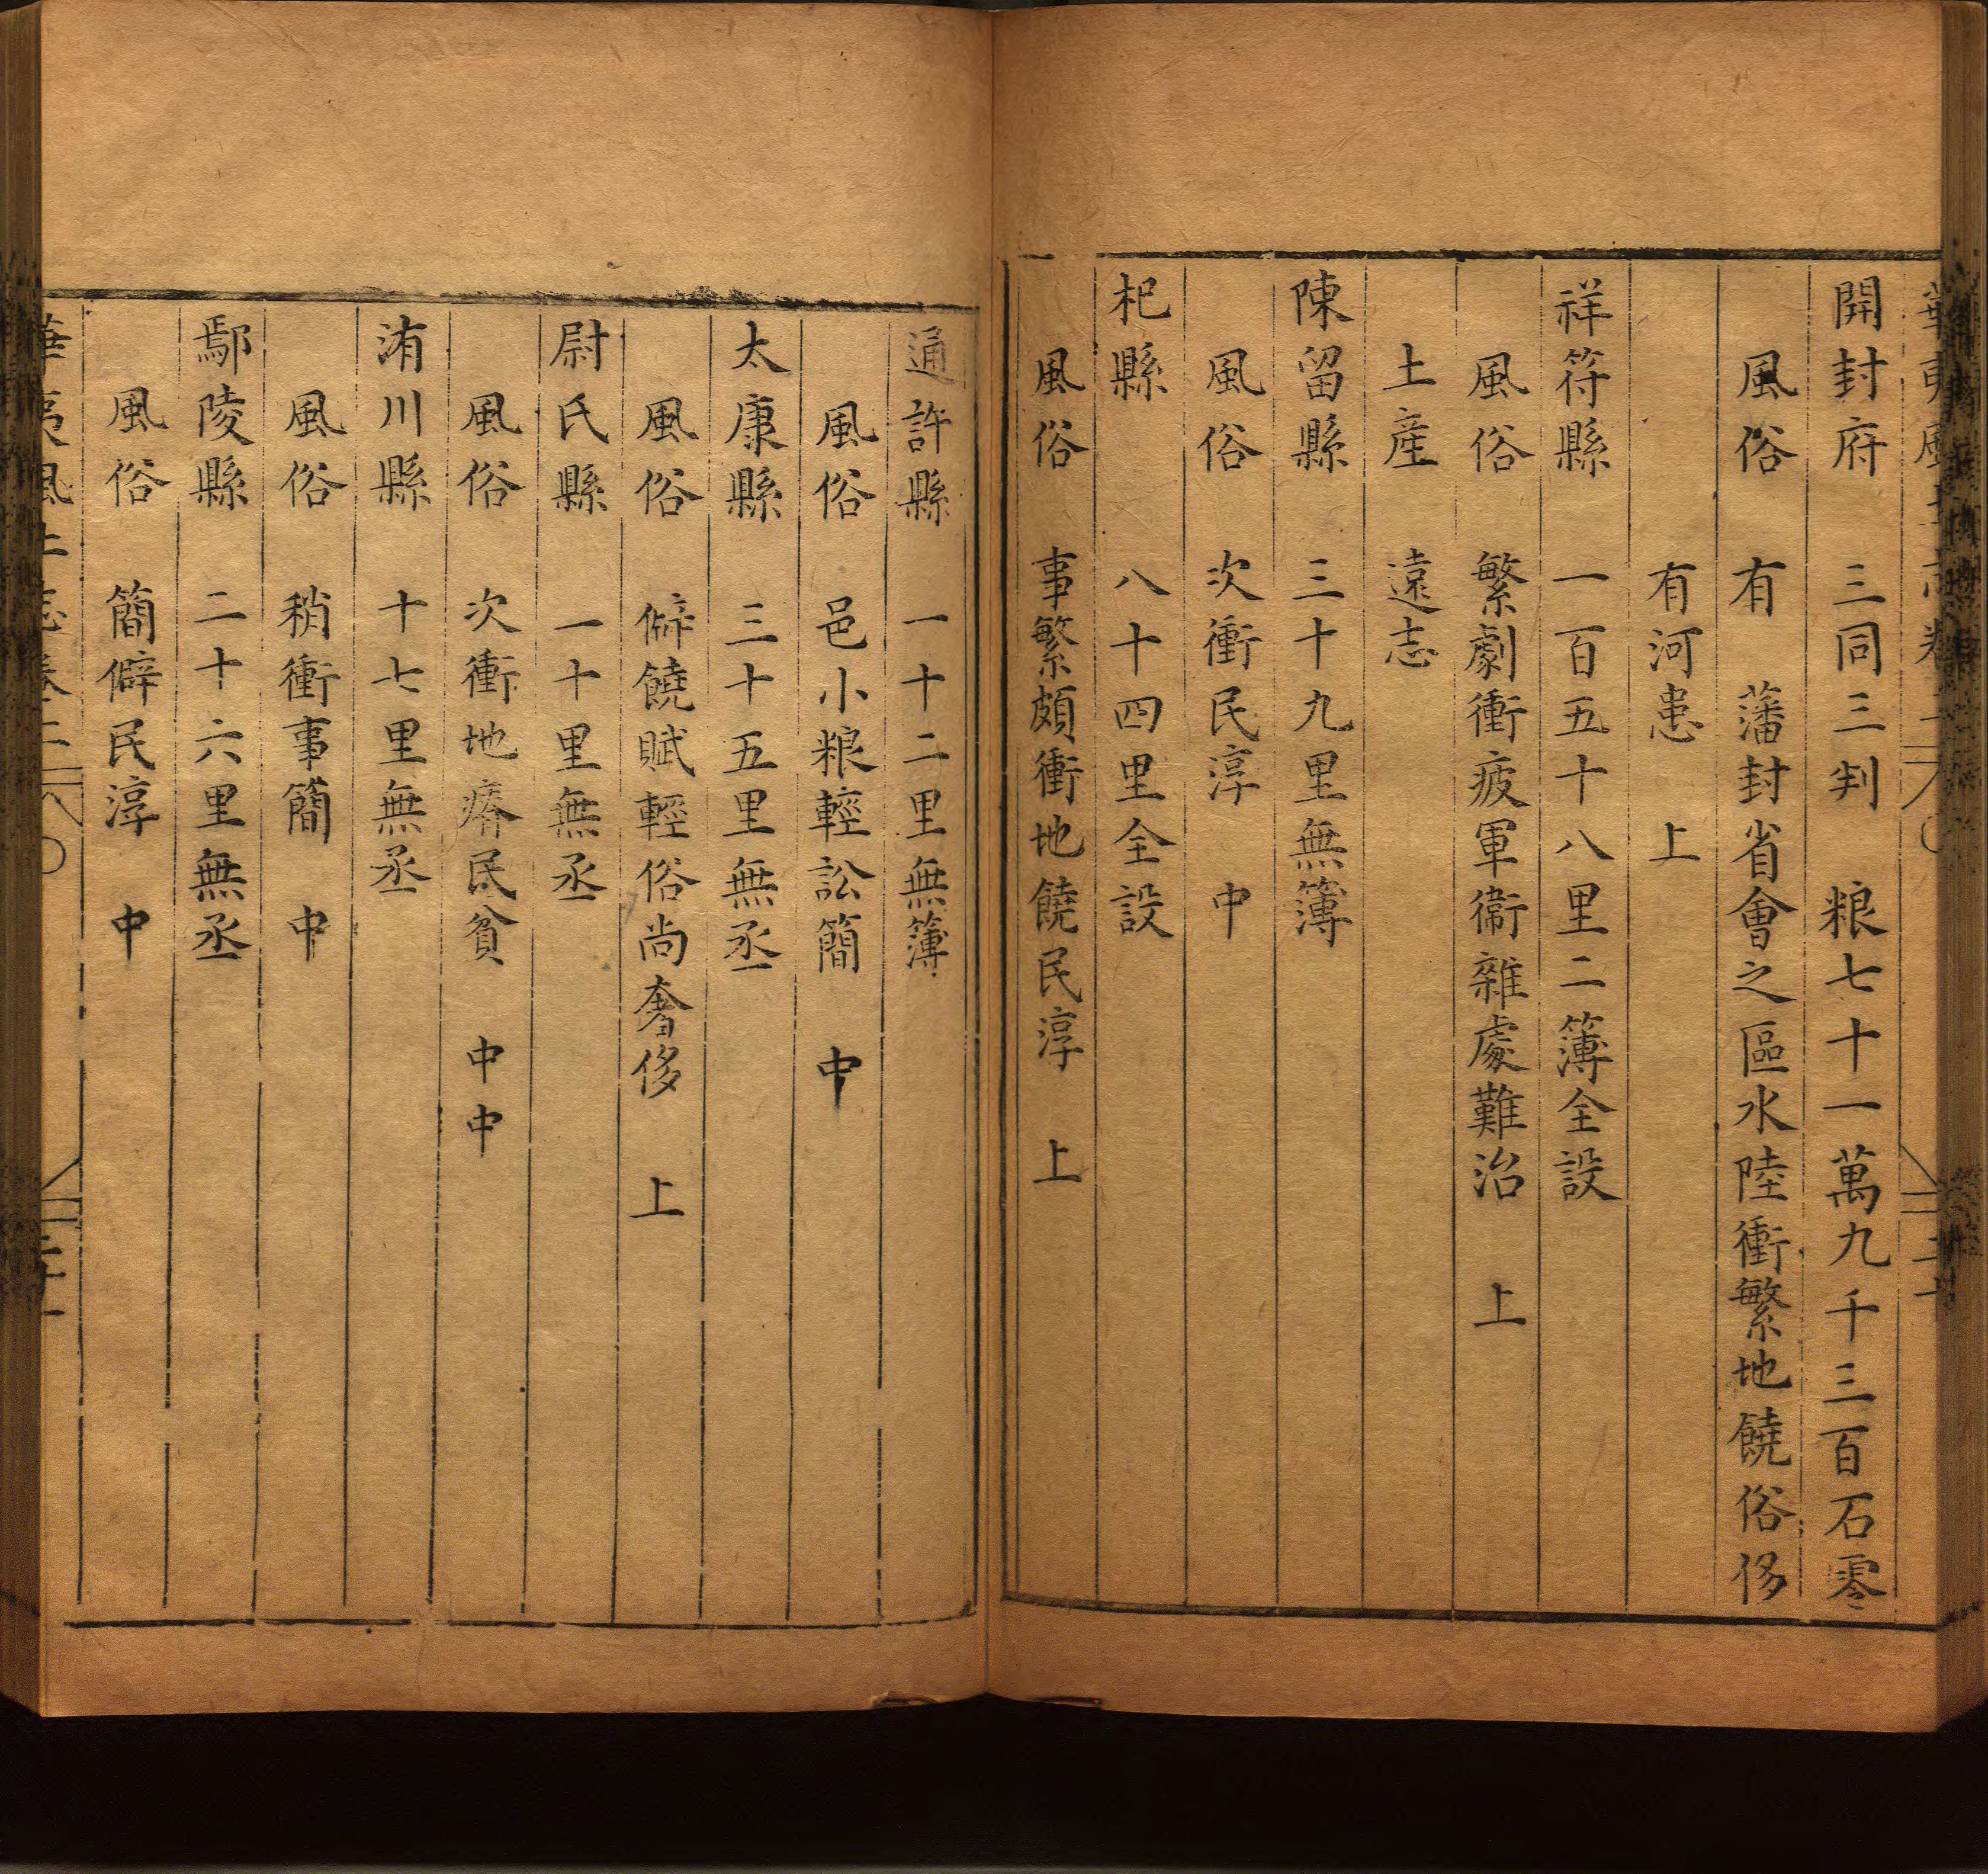 開封府　三同三判　粮七十一萬九千三百石零
風俗　有　藩封省會之區水陸衝繁地饒俗侈
有河患　上
祥符縣　一百五十八里二簿全設
風俗　繁劇衝疲軍衞雜處難治　上
土産　遠志
陳留縣　三十九里無簿
風俗　次衝民淳　中
杞縣　八十四里全設
風俗　事繁頗衝地饒民淳　上
通許縣　一十二里無簿
風俗　邑小粮輕訟簡　中
太康縣　三十五里無丞
風俗　僻饒賦輕俗尚奢侈　上
尉氏縣　一十里無丞
風俗　次衝地瘠民貧　中中
洧川縣　十七里無丞
風俗　稍衝事簡　中
鄢陵縣　二十六里無丞
風俗　簡僻民淳　中